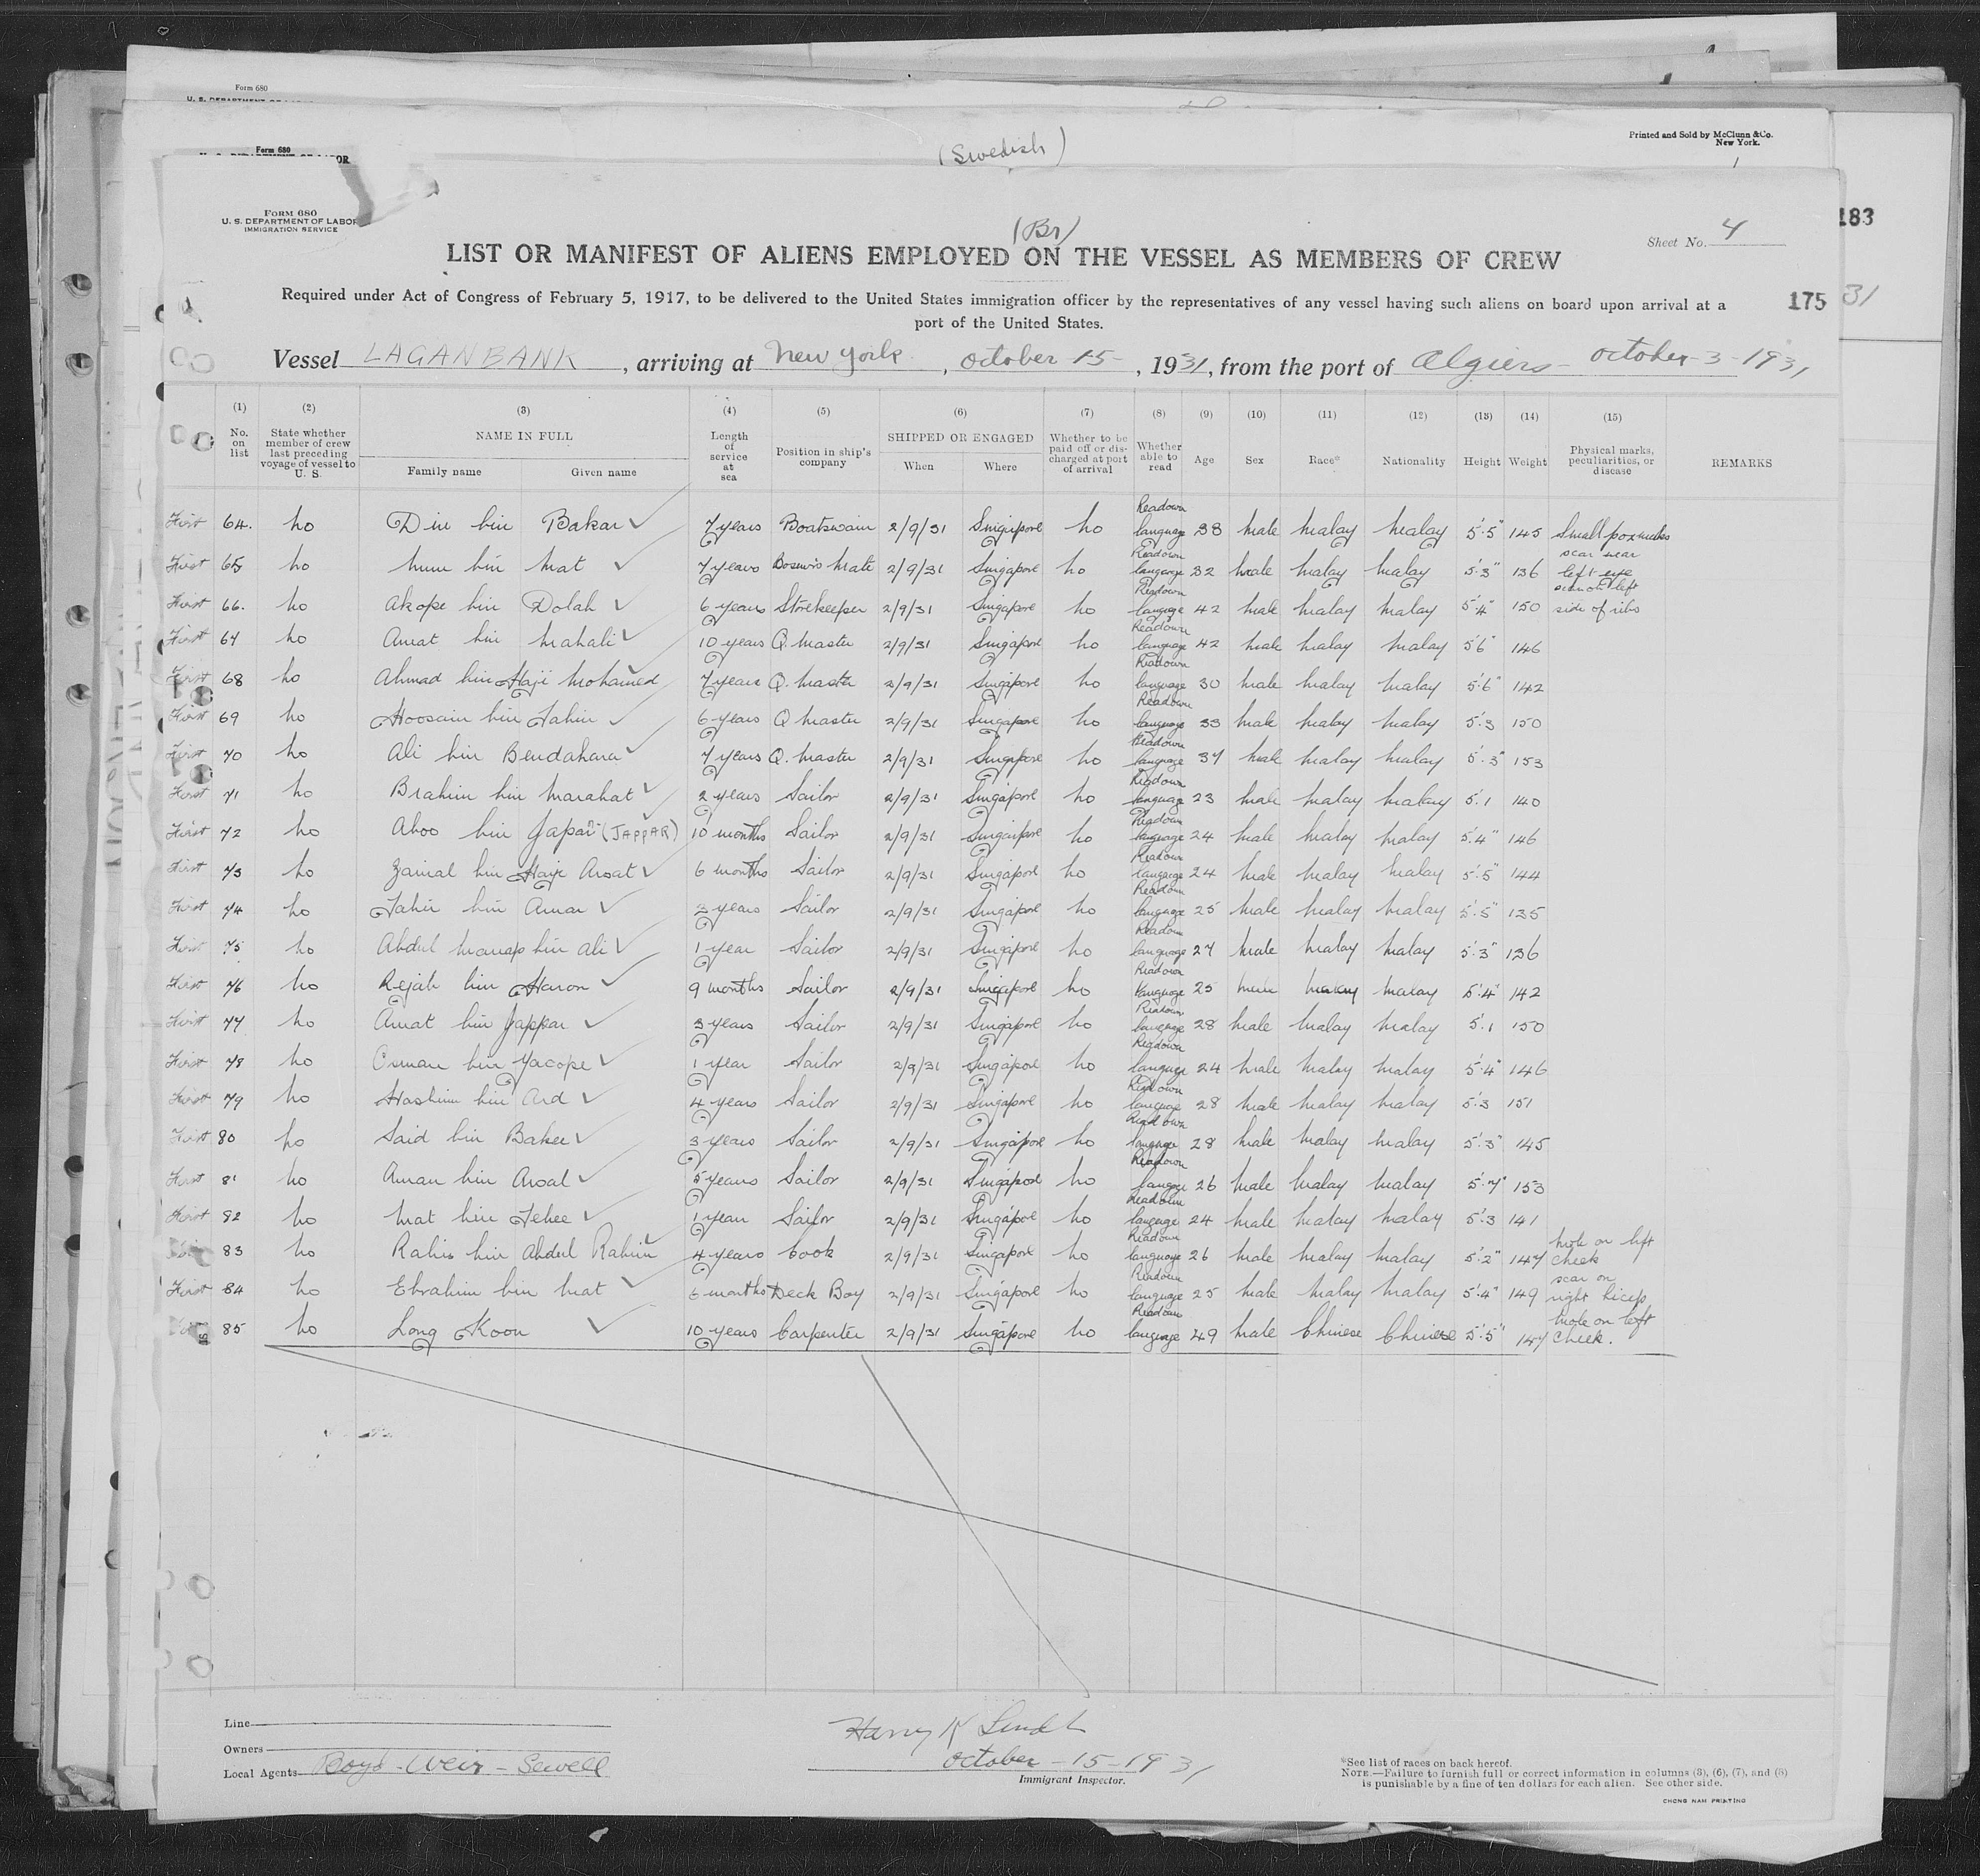 Form 680
(Swedish)
Printed and Sold by McClunn & Co.
New York.
Form 680
183
31
FORM 680
U. S. DEPARTMENT OF LABOR
IMMIGRATION SERVICE
(Br)
Sheet No. 4
LIST OR MANIFEST OF ALIENS EMPLOYED ON THE VESSEL AS MEMBERS OF CREW
Required under Act of Congress of February 5, 1917, to be delivered to the United States immigration officer by the representatives of any vessel having such aliens on board upon arrival at a
port of the United States.
175
Vessel LAGANBANK, arriving at New York, October 15-, 1931, from the port of Algiers - October-3-1931
(1) (2) (3) (4) (5) (6) (7) (8) (9) (10) (11) (12) (13) (14) (15)
No. on list | State whether member of crew last preceding voyage of vessel to U. S. | NAME IN FULL Family name Given name | Length of service at sea | Position in ship's company | SHIPPED OR ENGAGED When Where | Whether to be paid off or discharged at port of arrival | Whether able to read | Age | Sex | Race* | Nationality | Height | Weight | Physical marks, peculiarities, or disease | REMARKS
First 64. No Din bin Bakar 7 years Boatswain 2/9/31 Singapore No Read own language 38 Male Malay Malay 5'.5" 145 Small pox marks
First 65 No bin Mat 7 years Bosun's Mate 2/9/31 Singapore No Read own language 32 Male Malay Malay 5'.3" 136 scar near left eye
First 66. No Akope bin Dolah 6 years Storekeeper 2/9/31 Singapore No Read own language 42 Male Malay Malay 5'4" 150 scar on left side of ribs
First 67 No Amat bin Mahali 10 years Q. Master 2/9/31 Singapore No Read own language 42 Male Malay Malay 5'6" 146
First 68 No Ahmad bin Haji Mohamed 7 years Q. Master 2/9/31 Singapore No Read own language 30 Male Malay Malay 5'.6" 142
First 69 No Hoosain bin Tahir 6 years Q Master 2/9/31 Singapore No Read own language 33 Male Malay Malay 5'.3 150
First 70 No Ali bin Bendahara 7 years Q. Master 2/9/31 Singapore No Read own language 37 Male Malay Malay 5'.3" 153
First 71 No Brahim bin Marahat 2 years Sailor 2/9/31 Singapore No Read own language 23 Male Malay Malay 5'.1 140
First 72 No Aboo bin Japar (JAPPAR) 10 months Sailor 2/9/31 Singapore No Read own language 24 Male Malay Malay 5'.4" 146
First 73 No Zainal bin Haji Arsat 6 months Sailor 2/9/31 Singapore No Read own language 24 Male Malay Malay 5'.5" 144
First 74 No Tahir bin Amar 3 years Sailor 2/9/31 Singapore No Read own language 25 Male Malay Malay 5'.5" 135
First 75 No Abdul Manap bin Ali 1 year Sailor 2/9/31 Singapore No Read own language 27 Male Malay Malay 5'.3" 136
First 76 No Rejab bin Haron 9 months Sailor 2/9/31 Singapore No Read own language 25 Male Malay Malay 5'.4" 142
First 77 No Amat bin Jappar 3 years Sailor 2/9/31 Singapore No Read own language 28 Male Malay Malay 5'.1 150
First 78 No Osman bin Yacope 1 year Sailor 2/9/31 Singapore No Read own language 24 Male Malay Malay 5'.4" 146
First 79 No Hashim bin Ard 4 years Sailor 2/9/31 Singapore No Read own language 28 Male Malay Malay 5'.3 151
First 80 No Said bin Bakee 3 years Sailor 2/9/31 Singapore No Read own language 28 Male Malay Malay 5'.3" 145
First 81 No Aman bin Arsal 5 years Sailor 2/9/31 Singapore No Read own language 26 Male Malay Malay 5'.7" 153
First 82 No Mat bin Tehee 1 year Sailor 2/9/31 Singapore No Read own language 24 Male Malay Malay 5'.3 141
83 No Rahis bin Abdul Rahim 4 years Cook 2/9/31 Singapore No Read own language 26 Male Malay Malay 5'.2" 147 mole on left cheek
First 84 No Ebrahim bin Mat 6 months Deck Boy 2/9/31 Singapore No Read own language 25 Male Malay Malay 5'.4" 149 scar on right biceps
85 No Long Koon 10 years Carpenter 2/9/31 Singapore No Read own language 49 Male Chinese Chinese 5'.5" 147 mole on left cheek.
Line
Owners
Local Agents Boyd - Weir - Sewell
Harry K
October - 15 - 1931
Immigrant Inspector.
*See list of races on back hereof.
NOTE.—Failure to furnish full or correct information in columns (3), (6), (7), and (8)
is punishable by a fine of ten dollars for each alien. See other side.
CHONG NAM PRINTING